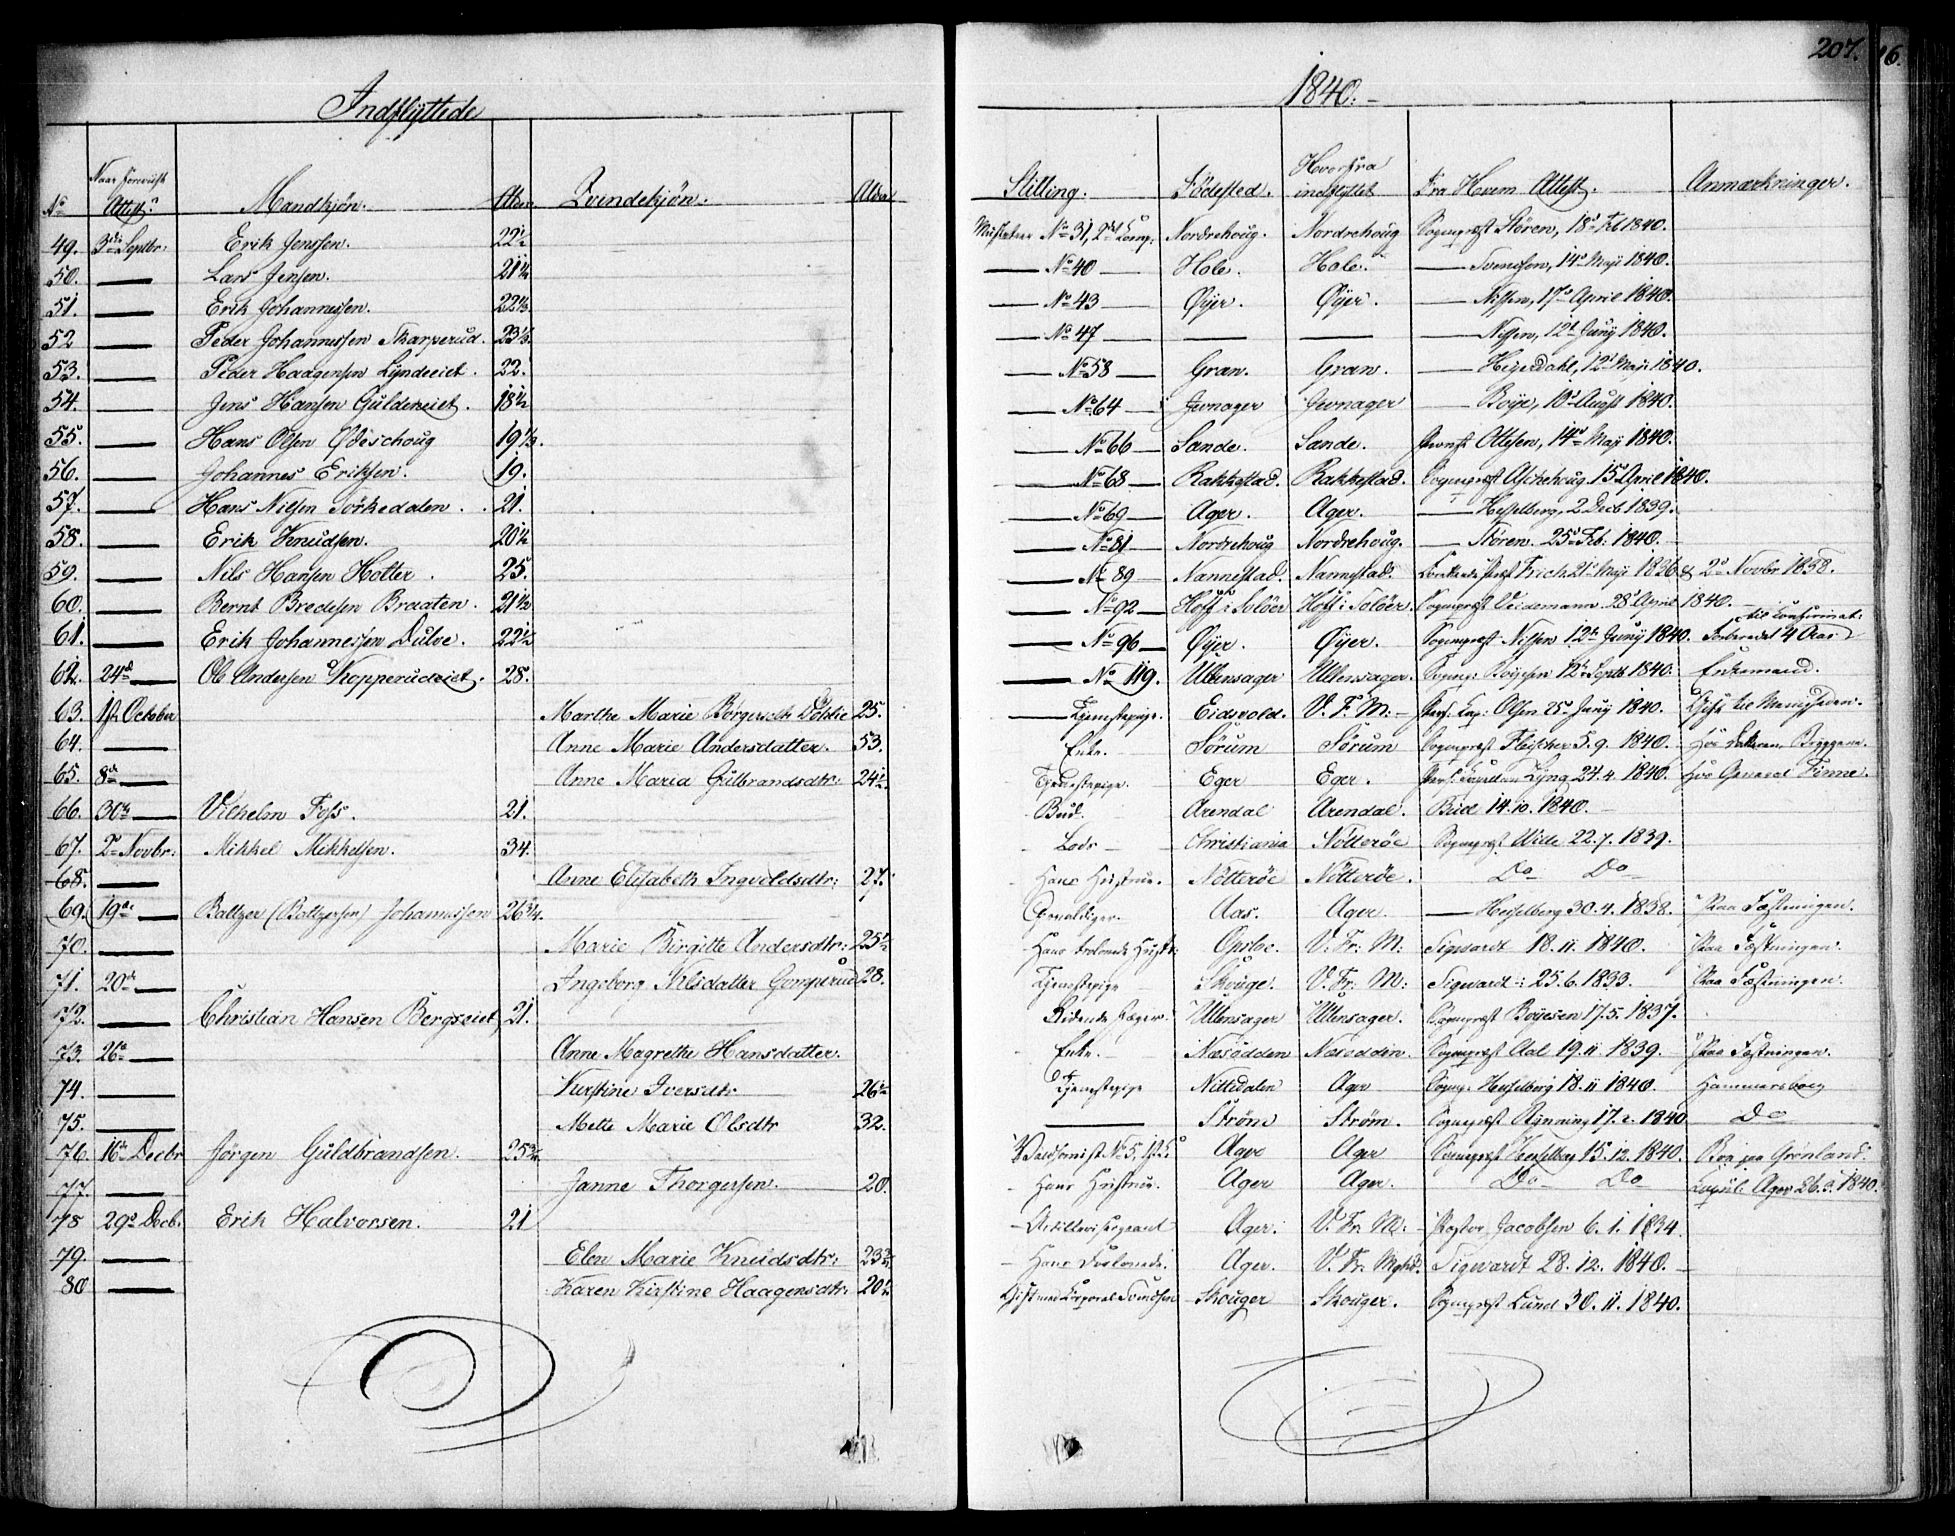 207.
Indflyttede 1840.
No Naar Foreviist Attest. Mandkjøn. Alder Qvindekjøn. Alder Stilling. Födested. Hvorfra indflyttet Fra Hvem Attest. Anmærkninger.
49. 3die Septbr. Erik Jenssen. 22½ No 31, 2det Comp. Nordrehoug. Nordrehoug Sogneprest Stören, 18de Feb 1840.
50. — Lars Jensen. 21¼ — No 40 — Hole. Hole. — Svendsen, 14de Maji 1840.
51. — Erik Johannesen. 22½ — No 43 Øyer. Øyer. — Nissen, 17de April 1840.
52 — Peder Johannessen Skarperud. 23½ — No 47 — — — Nissen, 12te Juny 1840.
53. — Peder Haagensen Lyndeeiet. 22. — No 58 — Gran. Gran. — Heyerdahl, 12te Maji 1840.
54. — Jens Hansen Guldeneiet. 18½ — No 64 — Jevnager Jevnager — Boye, 10de August 1840.
55. — Hans Olsen Ødeschoug 19½ — No 66 — Sande. Sande. Provst Ottesen, 14de Maji 1840.
56. — Johannes Eriksen. 19. — No 68 — Rakkestad. Rakkestad. Sogneprest Aschehoug. 15de April 1840.
57. — Hans Nilsen Sörkedalen. 21. — No 69 — Ager. Ager. — Hesselberg, 2 Decb 1839.
58. — Erik Knudsen. 20½ — No 81 — Nordrehoug Nordrehoug. — Stören. 25de Feb. 1840.
59. — Nils Hansen Holter. 25. — No 89 — Nannestad. Nannestad. Frich 21de Maji 1836 & 2den Novbr 1838.
60. — Bernt Bredesen Braaten. 21½ — No 92 — Hoff i Solöer Hoff i Solöer. Sogneprest Veidemann. 28de April 1840.
61. — Erik Johannessen Dulve. 22½ — No 96 — Øyer. Øyer. Sogneprest Nissen 12te Juny 1840. Forberedt 4 Aar til Confirmat:
62. 24de Ole Andersen Kopperudeiet. 28. — No 119. Ullensager Ullensager. Sogn: Boyesen 12te Septb 1840. Enkemand.
63. 1ste October Marthe Marie Börgersdtr Döhlie 25. — Tjenestepige. Eidsvold. V. F. M: Pers. Cap: Olsen 25de Juny 1840. Gift til Menigheden.
64. — Anne Marie Andersdatter. 53. Enke. Sörum Sörum Sogneprest Fleischer 5. 9. 1840. Hos Bryggene.
65. 8de — Anne Maria Gulbrandsdtr: 24½ Tjenestepige. Eger Eger. Pers: Capellan Lyng 24. 4. 1840. Hos General Finne.
66. 30te — Vilhelm Foss. 21. Bud. Arendal Arendal. Bude 14. 10. 1840.
67. 2den Novbr: Mikkel Mikkelsen. 34. Lods — Christiania Nötteröe Sogneprest Wille 22. 7. 1839.
68. — Anne Elisabeth Ingvoldsdtr: 27. Hans Hustrue. Nötteröe Nötteröe. Do Do
69. 19de — Baltzer (Baltzersen) Johannessen 26¾. Aas. Ager. — Hesselberg 30. 4. 1838. Paa Fæstningen.
70. — Marie Birgitte Andersdtr: 25½ Hans trolovede Hustr: Opsloe. V. Fr: M: Sigwardt 18. 11. 1840. Paa Fæstningen.
71. 20de — Ingeborg Nilsdatter Gomperud 28. Tjenestepige Skouge. V. Fr. M: Sigwardt: 25. 6. 1833. Paa Fæstningen.
72. — Christian Hansen Bergseiet 21. Ridende Jæger. Ullensager Ullensager. Sogneprest Boyesen 17. 5. 1837.
73. 26de — Anne Magrethe Hansdatter. Enke. — Næsodden Næsodden. Sogneprest Aal 19. 11 1839. Paa Fæstningen.
74. — Kirstine Iversdtr 26½ Tjenestepige Nittedalen Ager Sogn: Hesselberg 18. 11 1840. Hammersborg
75. — Mette Marie Olsdtr 32. — Ström Ström. Sogneprest Rynning 17. 2. 1840 Do
76. 16de Decbr Jörgen Guldbrandsen. 25¾ Ager Ager Sogneprest Hesselberg 15. 12. 1840. Boe paa Grönland.
77. — Janne Thorgersen. 20. Hans Hustrue. Ager Ager. Do Do Copul: Ager 26. 3. 1840.
78 29de Decb. Erik Halvorsen. 21 Artillerisergeant Ager. V. Fr. M: Pastor Jacobsen 6. 1. 1834.
79. — Elen Marie Knudsdtr: 23¾ Hans Trolovede. Ager. V. Fr. Mghd. Sigwardt 28. 12. 1840.
80 — Karen Kirstine Haagensdtr: 20½ Gift med Corporal Svendsen Skouger Skouger. Sogneprest Lund 30. 11. 1840.